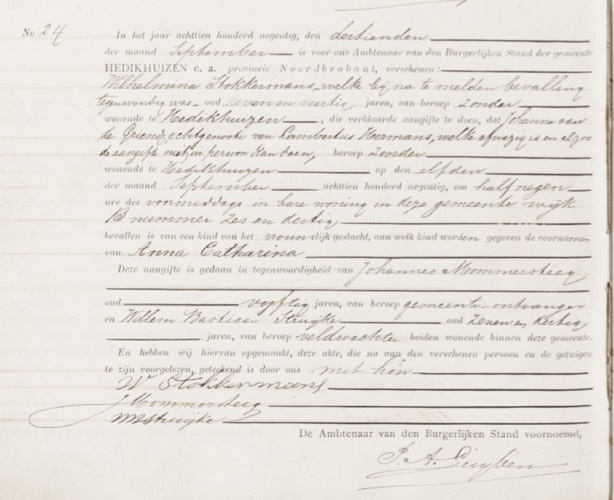 No 24
In het jaar achttien honderd negentig, den dertienden
der maand September is voor ons Ambtenaar van den Burgerlijken Stand der gemeente
HEDIKHUIZEN c. a. provincie Noordbrabant, verschenen:
Wilhelmina Stokkermans, welke bij na te melden bevalling
tegenwoordig was oud veertig jaren, van beroep zonder
wonende te Hedikhuizen, die verklaarde aangifte te doen, dat Johanna van
de Griend, echtgenoote van Lambertus Hoormans, welke afwezig is en alzoo
de aangifte niet in persoon kan doen, beroep zonder
wonende te Hedikhuizen op den elfden
der maand September achttien honderd negentig, om half negen
ure des voormiddags in hare woning in deze gemeente wijk
B nummer zes en dertig
bevallen is van een kind van het vrouwelijk geslacht, aan welk kind worden gegeven de voornamen
van Anna Catharina
Deze aangifte is gedaan in tegenwoordigheid van Johannes Mommersteeg
oud vijftig jaren, van beroep gemeente-ontvanger
en Willem Bastiaan Struijke oud zeven en dertig
jaren, van beroep veldwachter beiden wonende binnen deze gemeente.
En hebben wij hiervan opgemaakt, deze akte, die na aan den verschenen persoon en de getuigen
te zijn voorgelezen, geteekend is door ons met hen
W Stokkermans
J Mommersteeg
WBStruijke
De Ambtenaar van den Burgerlijken Stand voornoemd,
P. A.